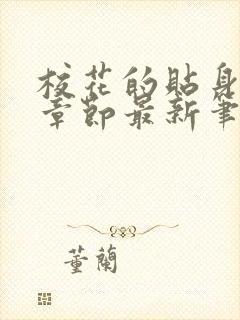 校花的貼身
章節最新筆
董蘭